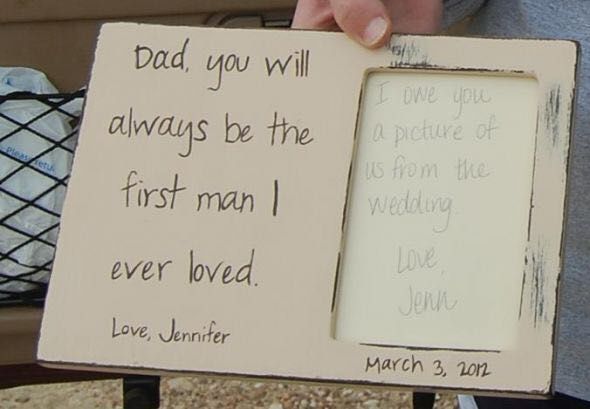 Dad, you will
always be the
first man I
ever loved.
Love, Jennifer
I owe you
a picture of
us from the
wedding.
Love,
Jenn
March 3, 2012